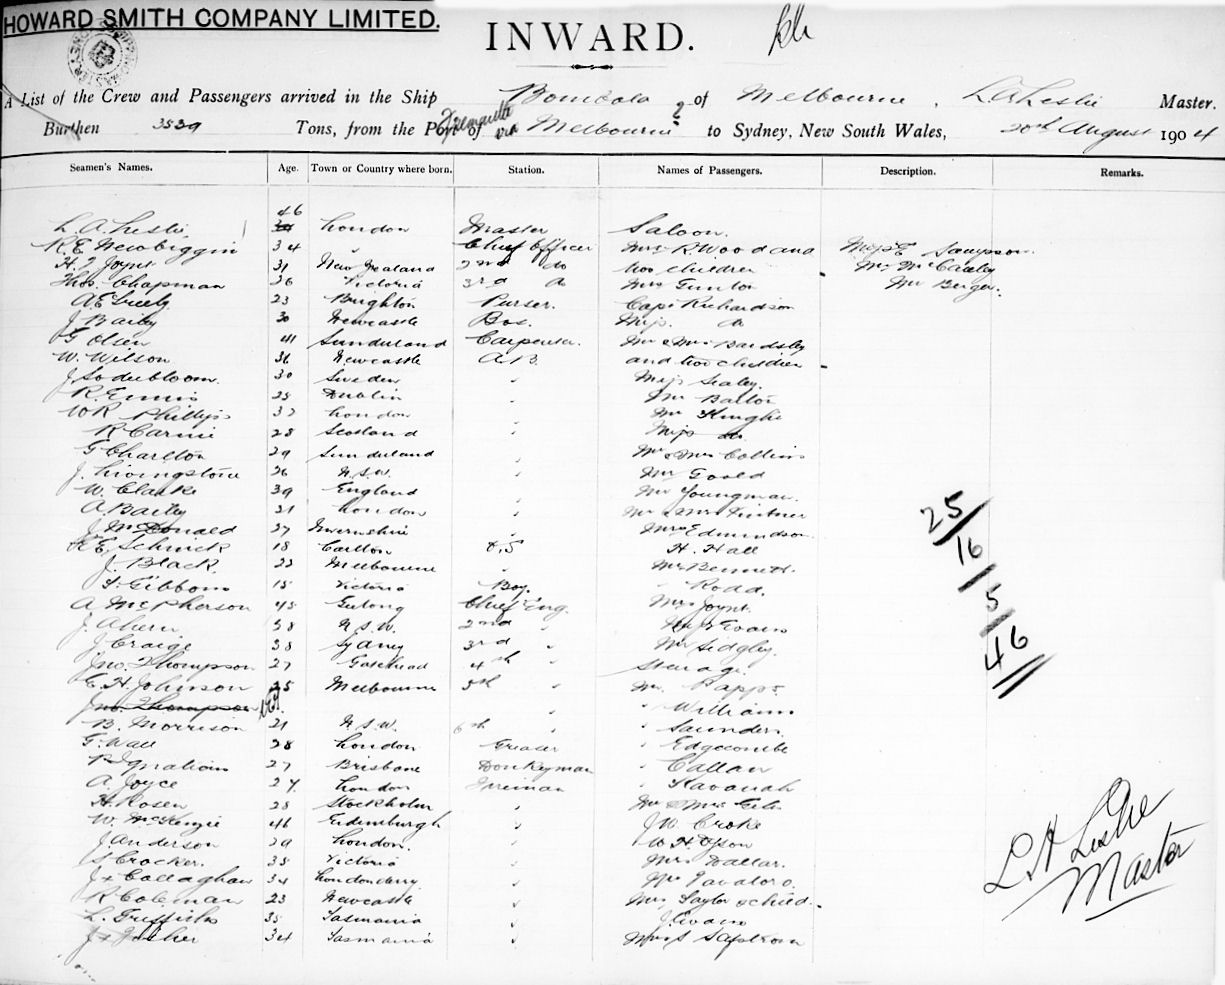 HOWARD SMITH COMPANY LIMITED.
INWARD.
A List of the Crew and Passengers arrived in the Ship Bombala of Melbourne, L A Leslie Master.
Burthen 3539 Tons, from the Port of Fremantle via Melbourne to Sydney, New South Wales, 20th August 1904
Seamen's Names. Age. Town or Country where born. Station. Names of Passengers. Description. Remarks.
46
L. A. Leslie London Master Saloon.
R. E. Newbiggin 34 " Chief Officer Mrs R. Wood and Miss E Sampson.
H. J. Joynt 31 New Zealand 2nd do two children Mr McCauley
Thos. Chapman 26 Victoria 3rd do Mrs Gunter Mr Berger.
A E Greely 23 Brighton Purser. Capt Richardson
J Baily 30 Newcastle Bos. Miss do
G Olsen 41 Sunderland Carpenter. Mr & Mrs Beardsley
W. Wilson 36 Newcastle A.B. and two children
J. Soderbloom. 30 Sweden " Miss Sealey.
R. Ennis 25 Dublin " Mr
WR Phillips 32 London " Mr
R Carnie 28 Scotland " Miss do.
G Charlton 29 Sunderland " Mr & Mrs Collins
J. Livingstone 26 N.S.W. " Mr Goold
W. Clarke 39 England " Mr Youngman.
A. Baily 21 London " Mr & Mrs
J. McDonald 27 Invernshire " Mrs Edmundson.
R E, Schruck 18 Carlton O.S H. Hall
J. Black. 22 Melbourne " Mr Bennett.
Gibbons 18 Victoria Boy. " Rodd.
A McPherson 45 Geelong Chief Eng. Mrs Joynt.
J. Ahern. 38 N.S.W. 2nd " Evans
J. Craige 38 Sydney 3rd " Mr Sedgley.
Jno. Thompson 27 Gateshead 4th " Steerage.
E. H. Johnson 25 Melbourne 5th " Mr. Papps.
Jno. Thompson " Williams
B. Morrison 21 N.S.W. 6th " " Saunders.
G. Wall 28 London Greaser " Edgecombe
P Ignatious 27 Brisbane Donkeyman " Callan
A. Joyce 24 London Fireman " Kavanah
H. Rosen 28 Stockholm " Mr & Mrs
W. McKenzie 46 Edinburgh " J W. Croke
J. Anderson 29 London. " W. H. Dyson
Crocker. 35 Victoria " Mrs Dallas.
J. Callaghan 34 Londonderry. " Mr
R Coleman 23 Newcastle " Mrs Taylor & child.
L. Griffiths 35 Tasmania " J. Evans
J. Fisher 34 Tasmania "
25
16
5
46
L A Leslie
Master